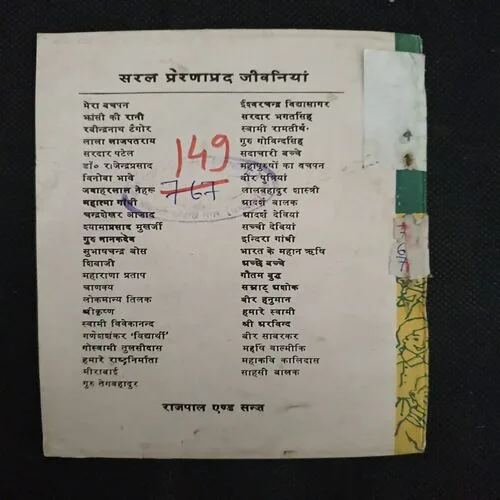 सरल प्रेरणाप्रद जीवनियां
मेरा बचपन
झांसी की रानी
रवीन्द्रनाथ टैगोर
लाला लाजपतराय
सरदार पटेल
डॉ० राजेन्द्रप्रसाद
विनोबा भावे
जवाहरलाल नेहरू
महात्मा गांधी
चन्द्रशेखर आज़ाद
श्यामाप्रसाद मुखर्जी
गुरु नानकदेव
सुभाषचन्द्र बोस
शिवाजी
महाराणा प्रताप
चाणक्य
लोकमान्य तिलक
श्रीकृष्ण
स्वामी विवेकानन्द
गणेशशंकर 'विद्यार्थी'
गोस्वामी तुलसीदास
हमारे राष्ट्रनिर्माता
मीराबाई
गुरु तेगबहादुर
ईश्वरचन्द्र विद्यासागर
सरदार भगतसिंह
स्वामी रामतीर्थ
गुरु गोविन्दसिंह
सदाचारी बच्चे
महापुरुषों का बचपन
वीर पुत्रियां
लालबहादुर शास्त्री
आदर्श बालक
आदर्श देवियां
सच्ची देवियां
इन्दिरा गांधी
भारत के महान ऋषि
अच्छे बच्चे
गौतम बुद्ध
सम्राट् अशोक
वीर हनुमान
हमारे स्वामी
श्री अरविन्द
वीर सावरकर
महर्षि वाल्मीकि
महाकवि कालिदास
साहसी बालक
149
767
767
राजपाल एण्ड सन्ज़